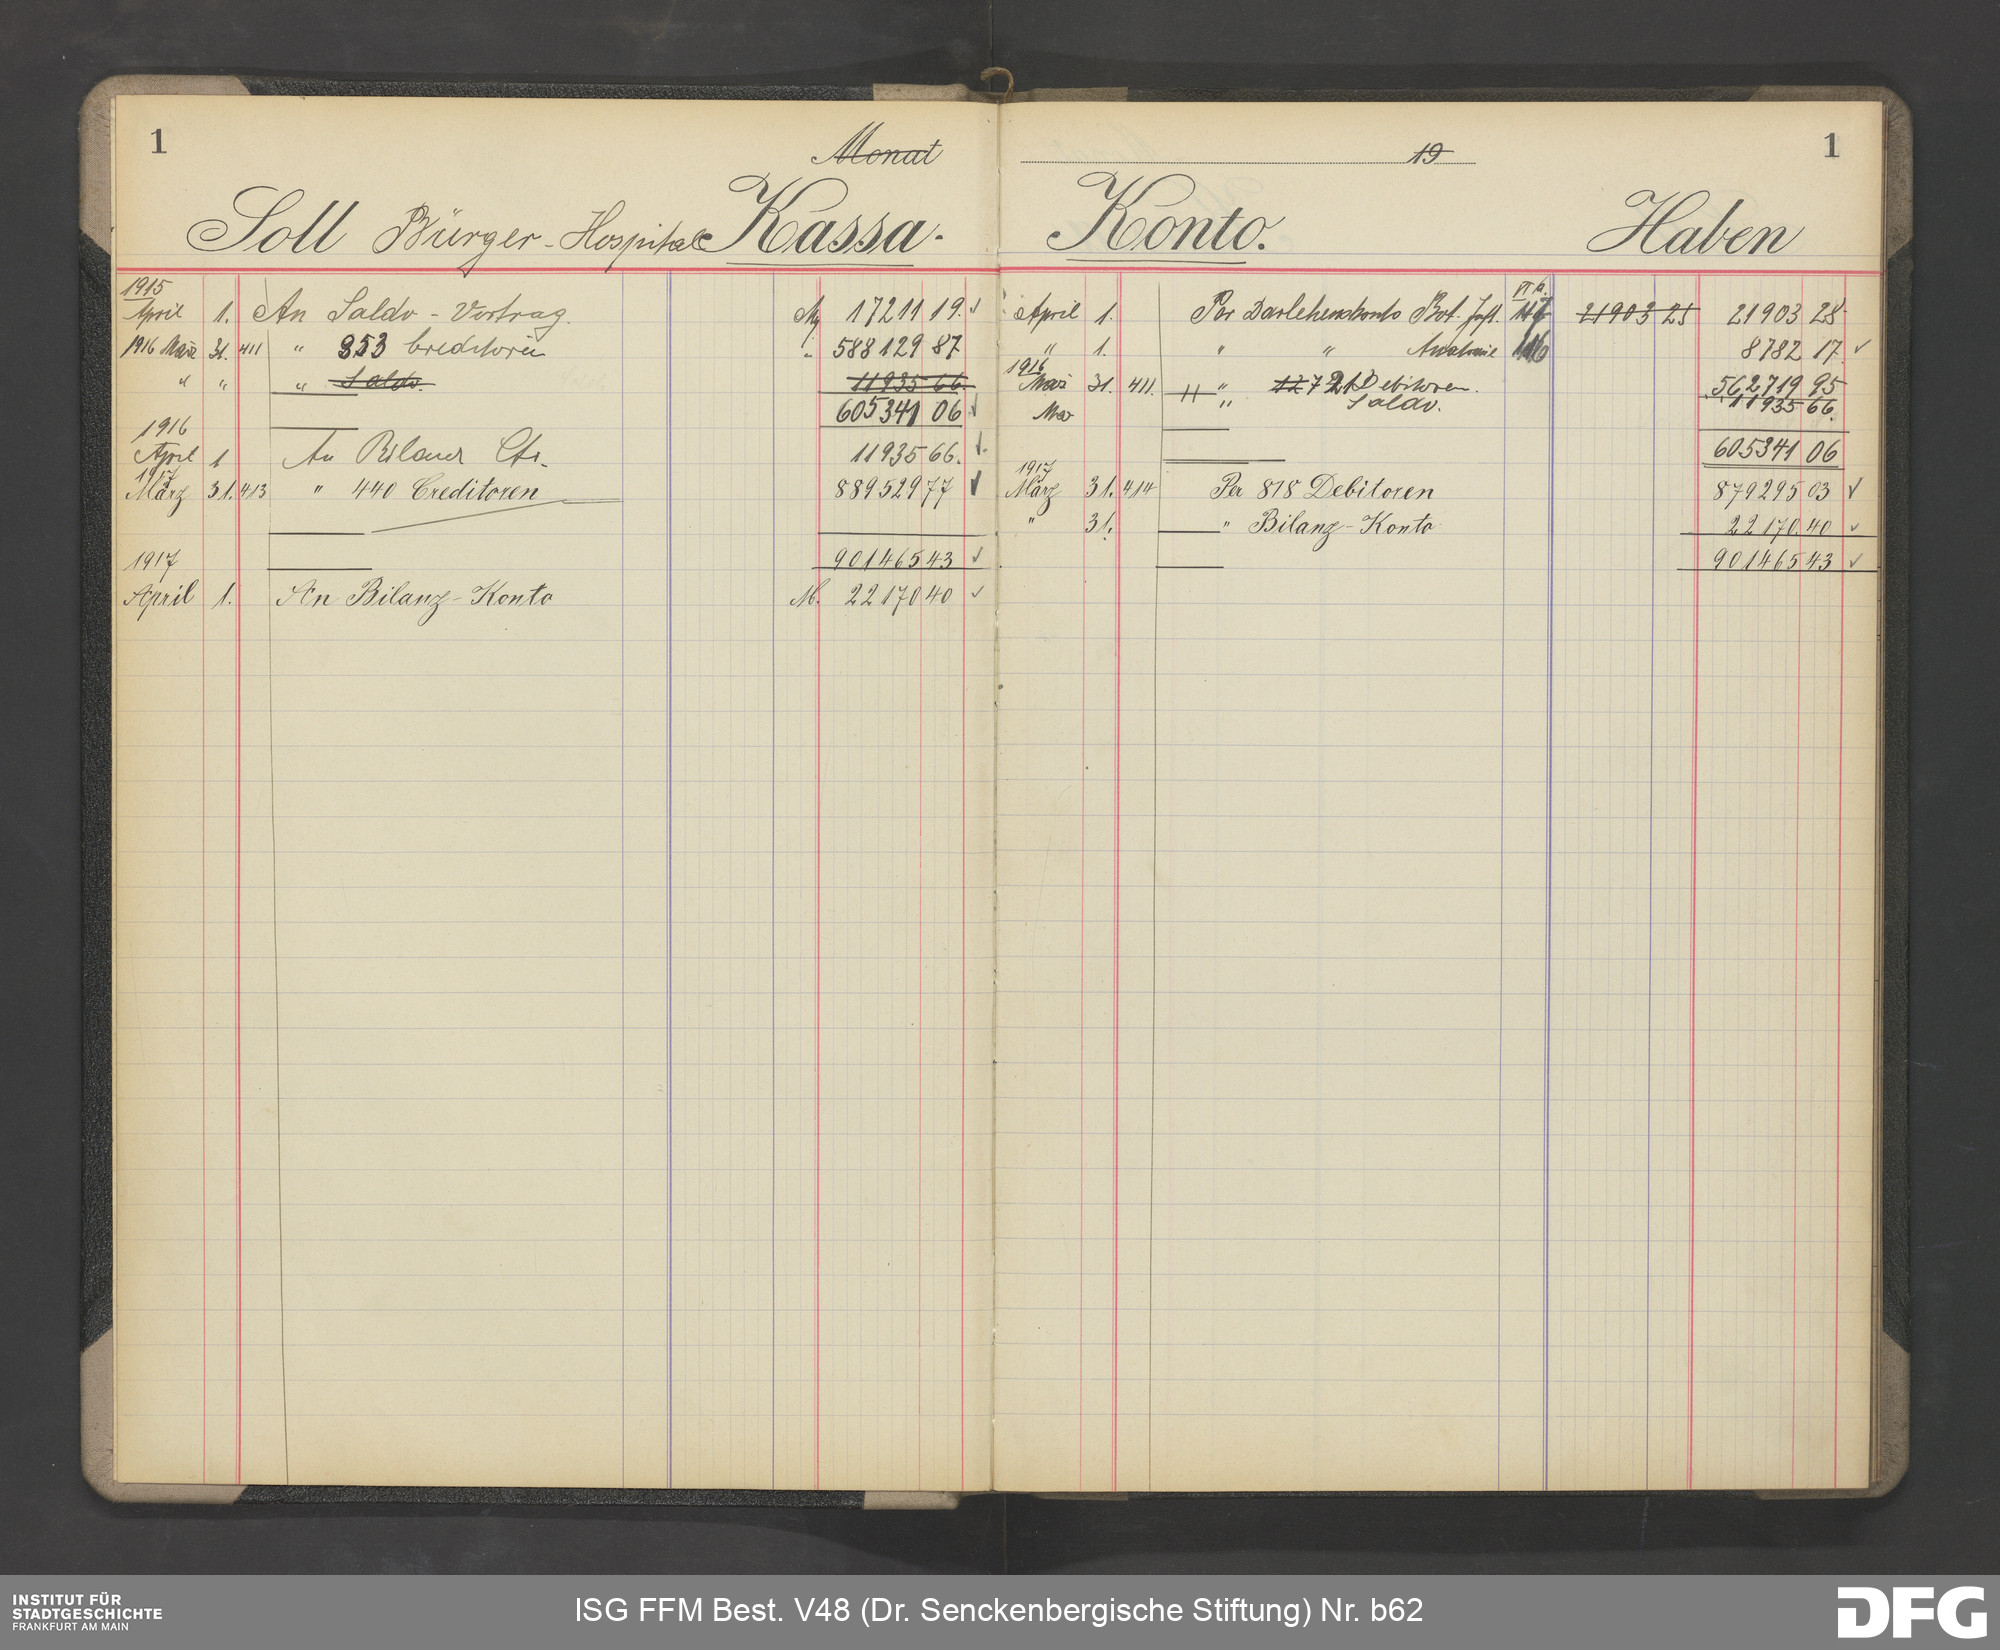 1
Monat
19
1
Soll Bürger-Hospital Kassa. Konto. Haben
1915
April 1. An Saldo-Vortrag. M 17211 19.
1916 März 31. 411 " 853 Creditoren " 588129 87
" " " Saldo. 11935 66.
605341 06
1916
April 1 An Bilanz Cto. 11935 66.
1917
März 31. 413 " 440 Creditoren 889529 77
901465 43
1917
April 1. An Bilanz-Konto M. 22170 40
VI a.
April 1. Per Darlehenskonto Bot. 117 21903 28 21903 28
" 1. " " Anatomie 116 8782 17.
1916
März 31. 411. " 721 Debitoren. 562719 95
" Saldo. 11935 66.
605341 06
1917
März 31. 414 Per 818 Debitoren 879295 03
" 31. " Bilanz-Konto 22170.40
901465 43
INSTITUT FÜR
STADTGESCHICHTE
FRANKFURT AM MAIN
ISG FFM Best. V48 (Dr. Senckenbergische Stiftung) Nr. b62
DFG